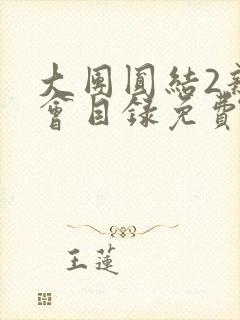 大团圆结2新
会目录免费
王莲